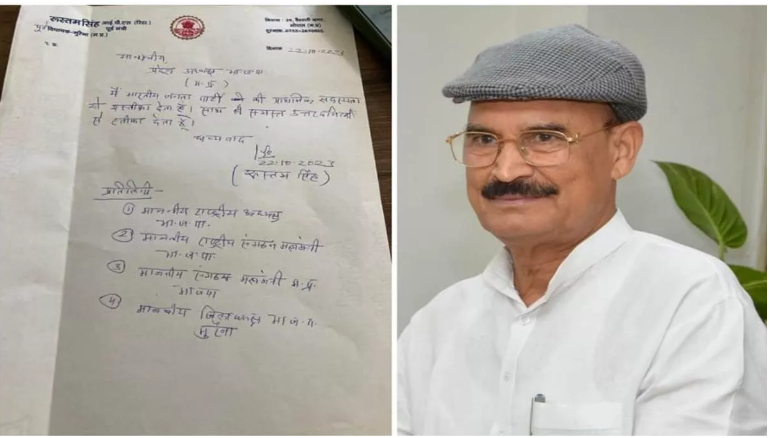 रूस्तम सिंह आई.पी.एस (रिटा.)
पूर्व मंत्री
पूर्व विधायक-मुरैना (म.प्र.)
भोपाल (म.प्र.)
दिनांक 22.10.2023
माननीय
प्रदेश अध्यक्ष भाजपा
(म.प्र.)
मैं भारतीय जनता पार्टी की प्राथमिक सदस्यता
से इस्तीफा देता हूँ। साथ ही समस्त उत्तरदायित्वों
से इस्तीफा देता हूँ।
धन्यवाद
22.10.2023
(रूस्तम सिंह)
प्रतिलिपि -
① माननीय राष्ट्रीय अध्यक्ष
भा.ज.पा.
② माननीय राष्ट्रीय संगठन महामंत्री
भा.ज.पा
③ माननीय संगठन महामंत्री म.प्र.
भाजपा
④ माननीय जिलाध्यक्ष भा.ज.पा.
मुरैना